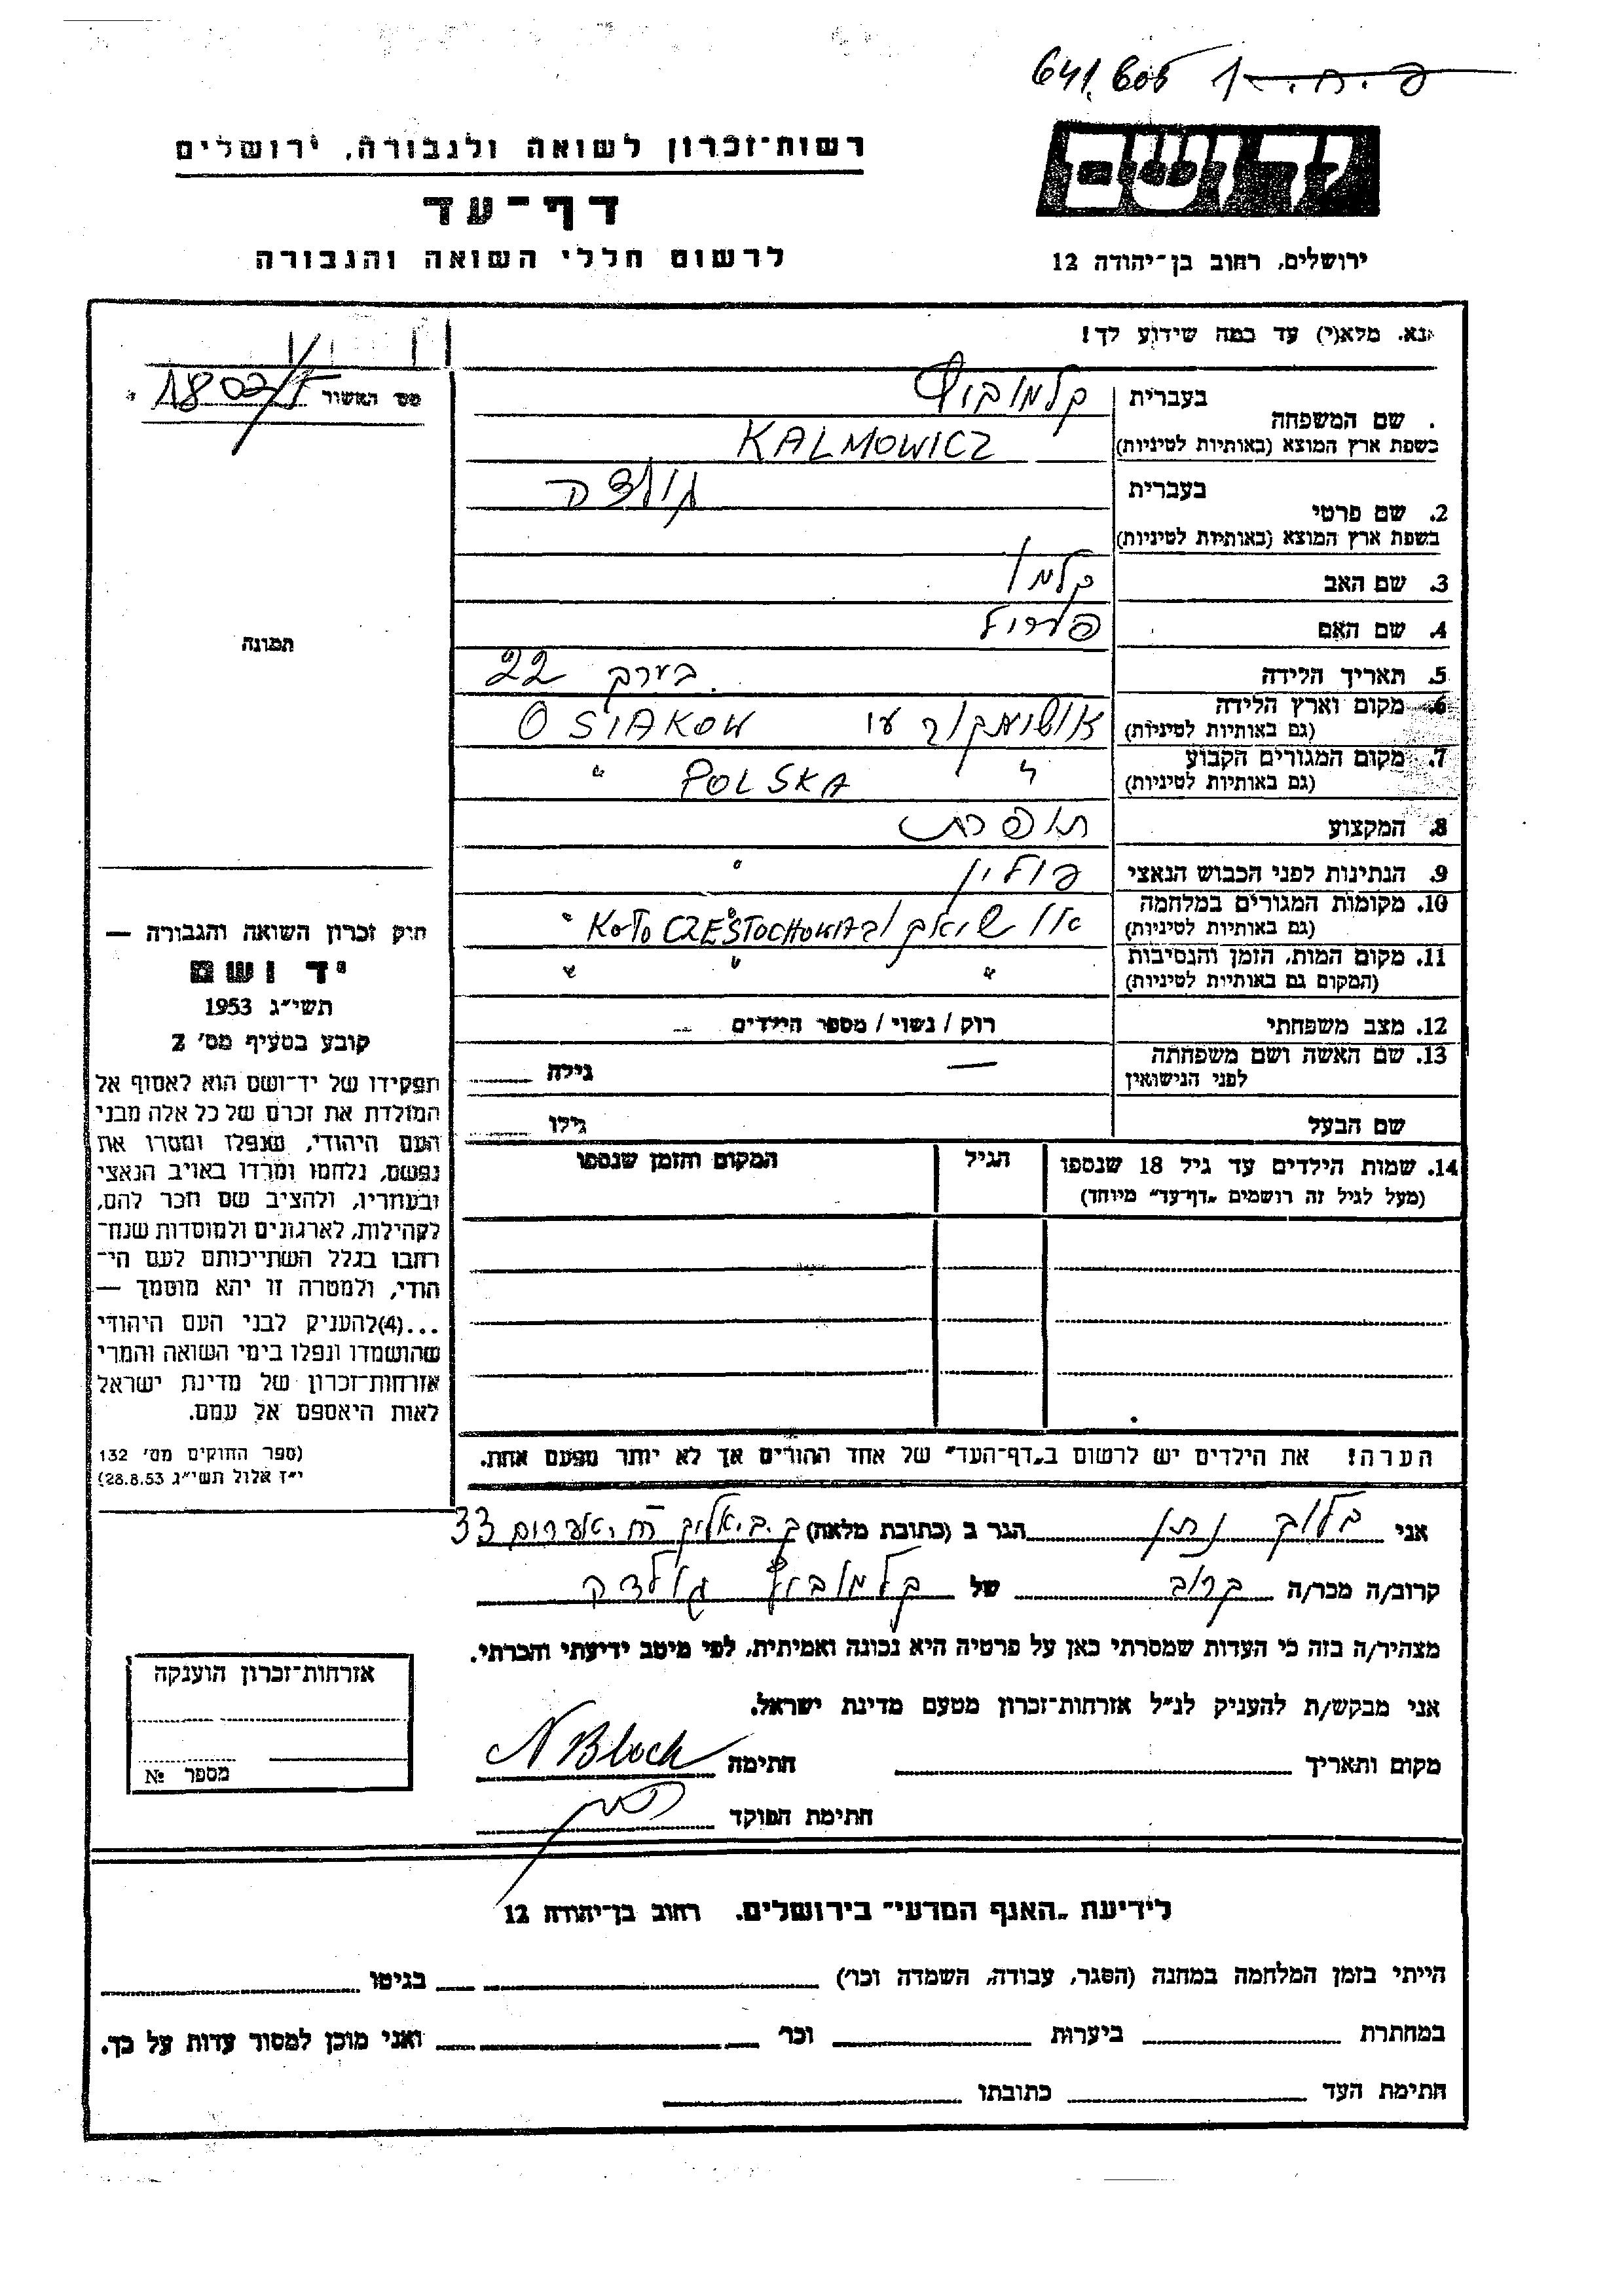 641,605
רשות-זכרון לשואה ולגבורה, ירושלים
דף-עד
לרשום חללי השואה והגבורה
ידושם
ירושלים, רחוב בן-יהודה 12
נא. מלא(י) עד כמה שידוע לך!
מס׳ האשור 1802/5
שם המשפחה
בעברית קלמוביץ
בשפת ארץ המוצא (באותיות לטיניות) KALMOWICZ
2. שם פרטי
בעברית גולדה
בשפת ארץ המוצא (באותיות לטיניות)
3. שם האב קלמן
4. שם האם
5. תאריך הלידה בערך 22
6. מקום וארץ הלידה OSIAKOW
(גם באותיות לטיניות)
7. מקום המגורים הקבוע " POLSKA "
(גם באותיות לטיניות)
8. המקצוע תופרת
9. הנתינות לפני הכבוש הנאצי פולין "
10. מקומות המגורים במלחמה CZESTOCHOWA "
(גם באותיות לטיניות)
11. מקום המות, הזמן והנסיבות " " "
(המקום גם באותיות לטיניות)
12. מצב משפחתי רוק / נשוי / מספר הילדים
13. שם האשה ושם משפחתה — גילה
לפני הנישואין
שם הבעל גילו
14. שמות הילדים עד גיל 18 שנספו הגיל המקום והזמן שנספו
(מעל לגיל זה רושמים „דף-עד״ מיוחד)
הערה! את הילדים יש לרשום ב„דף-העד״ של אחד ההורים אך לא יותר מפעם אחת.
תמונה
חוק זכרון השואה והגבורה —
יד ושם
תשי״ג 1953
קובע בסעיף מס׳ 2
תפקידו של יד-ושם הוא לאסוף אל
המולדת את זכרם של כל אלה מבני
העם היהודי, שנפלו ומסרו את
נפשם, נלחמו ומרדו באויב הנאצי
ובעוזריו, ולהציב שם וזכר להם,
לקהילות, לארגונים ולמוסדות שנח-
רבו בגלל השתייכותם לעם הי-
הודי, ולמטרה זו יהא מוסמך —
...(4)להעניק לבני העם היהודי
שהושמדו ונפלו בימי השואה והמרי
אזרחות-זכרון של מדינת ישראל
לאות היאספם אל עמם.
(ספר החוקים מס׳ 132
י״ז אלול תשי״ג 28.8.53)
אני בלוך נתן הגר ב (כתובת מלאה) ק. ביאליק 33
קרוב/ה מכר/ה קרוב של קלמוביץ גולדה
מצהיר/ה בזה כי העדות שמסרתי כאן על פרטיה היא נכונה ואמיתית, לפי מיטב ידיעתי והכרתי.
אני מבקש/ת להעניק לנ״ל אזרחות-זכרון מטעם מדינת ישראל.
מקום ותאריך חתימה N Bloch
חתימת הפוקד
אזרחות-זכרון הוענקה
מספר №
לידיעת „האגף המדעי״ בירושלים. רחוב בן-יהודה 12
הייתי בזמן המלחמה במחנה (הסגר, עבודה, השמדה וכו׳) בגיטו
במחתרת ביערות וכו׳ ואני מוכן למסור עדות על כך.
חתימת העד כתובתו